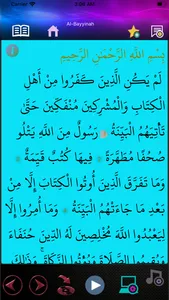 Al-Bayyinah
بِسْمِ اللَّهِ الرَّحْمَٰنِ الرَّحِيمِ
لَمْ يَكُنِ الَّذِينَ كَفَرُوا مِنْ أَهْلِ
الْكِتَابِ وَالْمُشْرِكِينَ مُنْفَكِّينَ حَتَّىٰ
تَأْتِيَهُمُ الْبَيِّنَةُ رَسُولٌ مِنَ اللَّهِ يَتْلُو
صُحُفًا مُطَهَّرَةً فِيهَا كُتُبٌ قَيِّمَةٌ
وَمَا تَفَرَّقَ الَّذِينَ أُوتُوا الْكِتَابَ إِلَّا مِنْ
بَعْدِ مَا جَاءَتْهُمُ الْبَيِّنَةُ وَمَا أُمِرُوا إِلَّا
لِيَعْبُدُوا اللَّهَ مُخْلِصِينَ لَهُ الدِّينَ حُنَفَاءَ
وَيُقِيمُوا الصَّلَاةَ وَيُؤْتُوا الزَّكَاةَ وَذَٰلِكَ